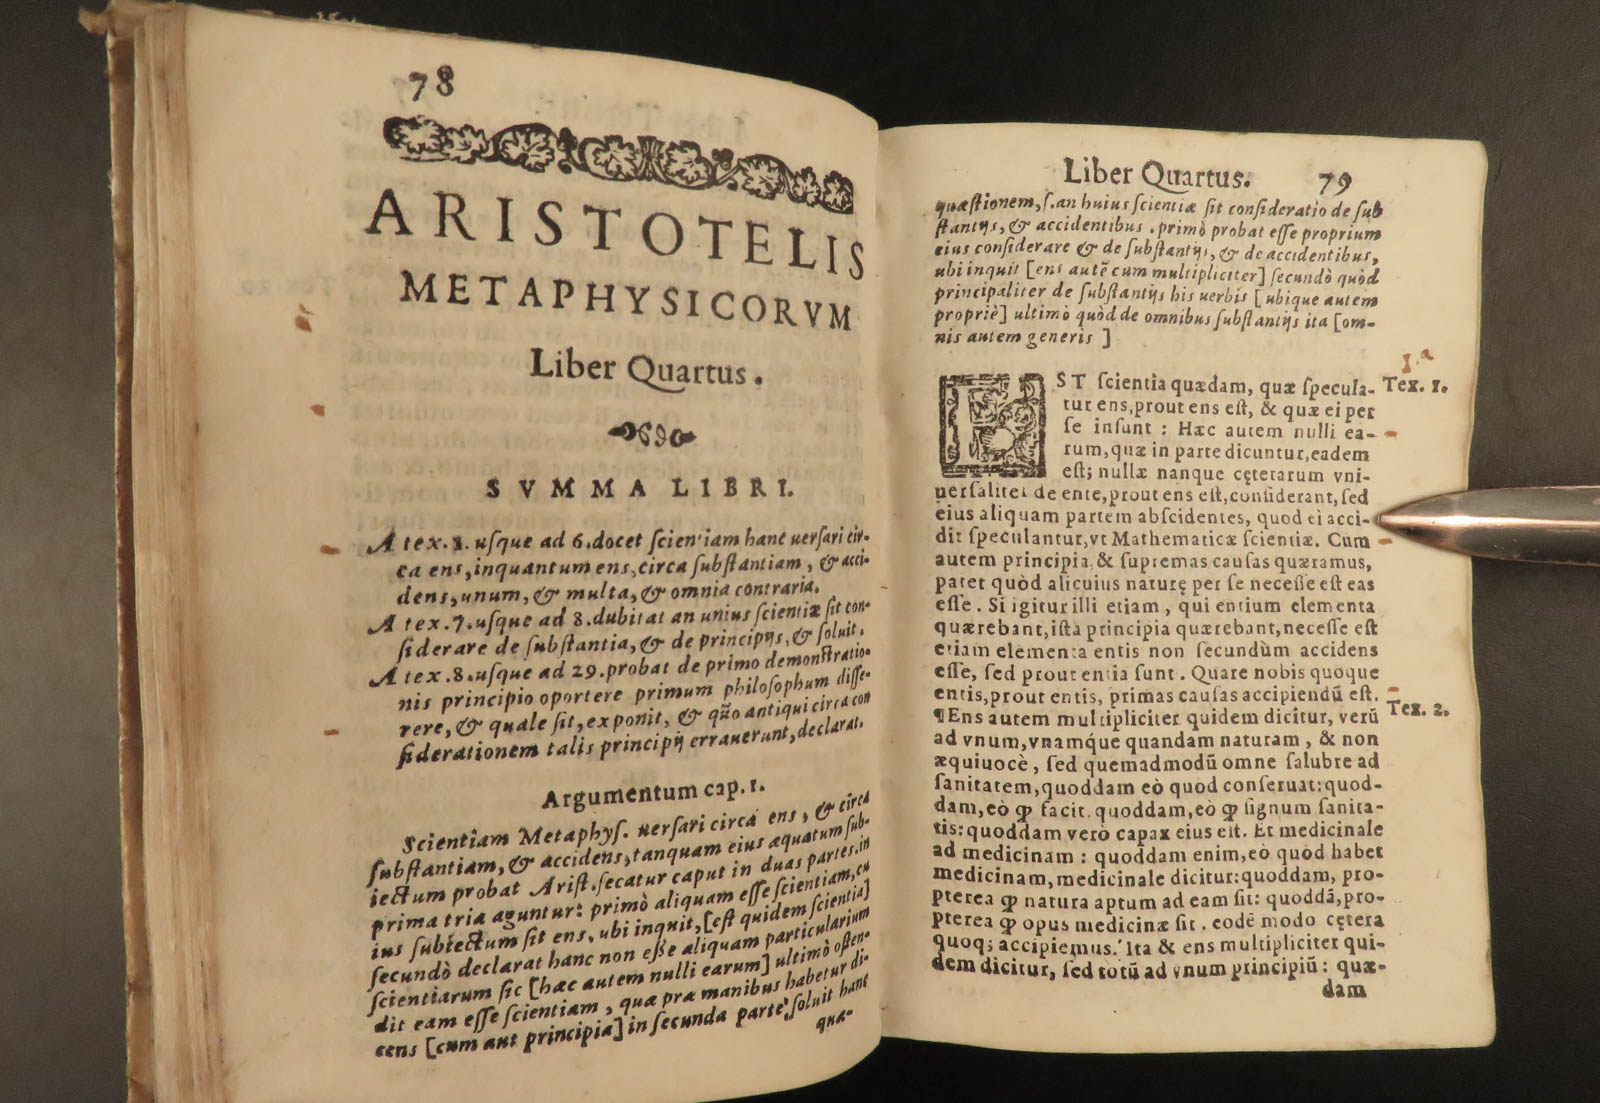 78
ARISTOTELIS
METAPHYSICORVM
Liber Quartus.
SVMMA LIBRI.
A tex. 1. uſque ad 6. docet ſcientiam hanc uerſari cir-
ca ens, inquantum ens, circa ſubſtantiam, & acci-
dens, unum, & multa, & omnia contraria.
A tex. 7. uſque ad 8. dubitat an unius ſcientiæ ſit con-
ſiderare de ſubſtantia, & de principijs, & ſoluit.
A tex. 8. uſque ad 29. probat de primo demonſtratio-
nis principio oportere primum philoſophum diſſe-
rere, & quale ſit, exponit, & quō antiqui circa con
ſiderationem talis principij errauerunt, declarat.
Argumentum cap. 1.
Scientiam Metaphyſ. uerſari circa ens, & circa
ſubſtantiam, & accidens, tanquam eius æquatum ſub-
iectum probat Ariſt. ſecatur caput in duas partes. in
prima tria aguntur: primò aliquam eſſe ſcientiam, cu
ius ſubiectum ſit ens, ubi inquit, [eſt quidem ſcientia]
ſecundò declarat hanc non eſſe aliquam particularium
ſcientiarum ſic [hæc autem nulli earum] ultimò oſten-
dit eam eſſe ſcientiam, quæ præ manibus habetur di-
cens [cum aut principia] in ſecunda parte ſoluit hanc
quæ-
Liber Quartus. 79
quæſtionem, ſ. an huius ſcientiæ ſit conſideratio de ſub
ſtantijs, & accidentibus. primò probat eſſe proprium
eius conſiderare & de ſubſtantijs, & de accidentibus,
ubi inquit [ens autē cum multipliciter] ſecundò quòd
principaliter de ſubſtantijs his uerbis [ubique autem
propriè] ultimò quòd de omnibus ſubſtantijs ita [om-
nis autem generis]
1.a
EST ſcientia quædam, quæ ſpecula- Tex. 1.
tur ens, prout ens eſt, & quæ ei per
ſe inſunt: Hæc autem nulli ea-
rum, quæ in parte dicuntur, eadem
eſt; nullæ nanque cęterarum vni-
uerſaliter de ente, prout ens eſt, conſiderant, ſed
eius aliquam partem abſcidentes, quod ei acci-
dit ſpeculantur, vt Mathematicæ ſcientiæ. Cum
autem principia, & ſupremas cauſas quæramus,
patet quòd alicuius naturę per ſe neceſſe eſt eas
eſſe. Si igitur illi etiam, qui entium elementa
quærebant, iſta principia quærebant, neceſſe eſt
etiam elementa entis non ſecundùm accidens
eſſe, ſed prout entia ſunt. Quare nobis quoque
entis, prout entis, primas cauſas accipiendū eſt.
¶Ens autem multipliciter quidem dicitur, verū Tex. 2.
ad vnum, vnamq́ue quandam naturam, & non
æquiuocè, ſed quemadmodū omne ſalubre ad
ſanitatem, quoddam eò quòd conſeruat: quod-
dam, eò ꝙ facit. quoddam, eò ꝙ ſignum ſanita-
tis: quoddam verò capax eius eſt. Et medicinale
ad medicinam: quoddam enim, eò quòd habet
medicinam, medicinale dicitur: quoddam, pro-
pterea ꝙ natura aptum ad eam ſit: quoddā, pro-
pterea ꝙ opus medicinæ ſit. eodē modo cętera
quoq; accipiemus. Ita & ens multipliciter qui-
dem dicitur, ſed totū ad vnum principiū: quæ-
dam